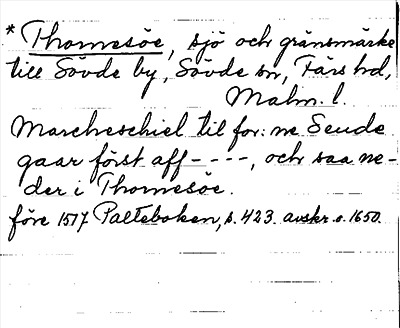 * Thomesöe, sjö och gränsmärke
till Sövde by, Sövde sn, Färs hd,
Malm. l.
Marcheschiel til for: ne Seude
gaar först aff - - - -, och saa ne-
der i Thomesöe.
före 1517 Palteboken, s. 423. avskr. o. 1650.